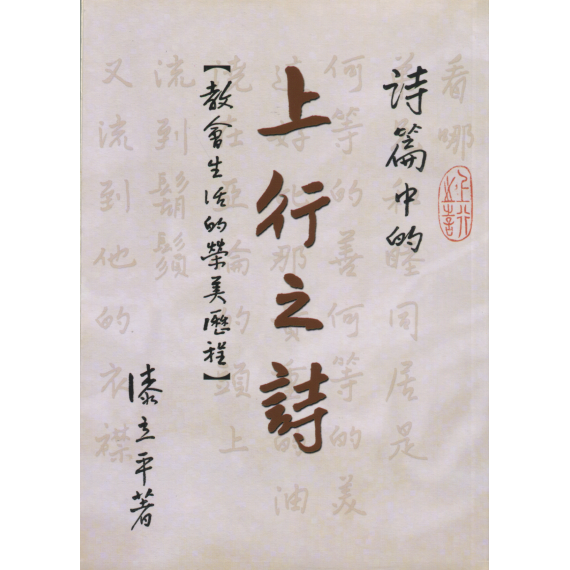 詩篇中的
上行之詩
【教會生活的榮美歷程】
漆立平著
看哪
和睦同居是
何等的善何等的美
這好比那貴重的油
澆在亞倫的頭上
流到鬍鬚
又流到他的衣襟